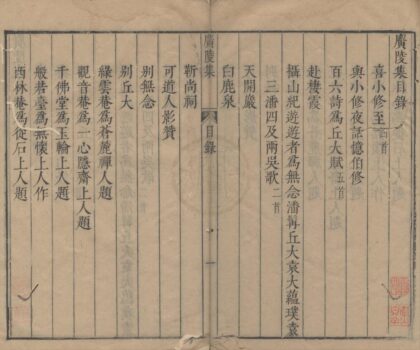 廣陵集目錄
喜小修至二首
與小修夜話憶伯修
百六詩爲丘大賦五首
赴棲霞
攝山紀遊遊者爲無念潘髯丘大袁大蘊璞袁
三潘四及兩吳歌二首
天開巖
白鹿泉
廣陵集
目錄
一
靳尚祠
可道人影贊
別無念
別丘大
綠雲菴爲蒼麓禪人題
觀音菴爲一心隱齋上人題
千佛堂爲玉輪上人題
般若臺爲無懷上人作
西林菴爲從石上人題